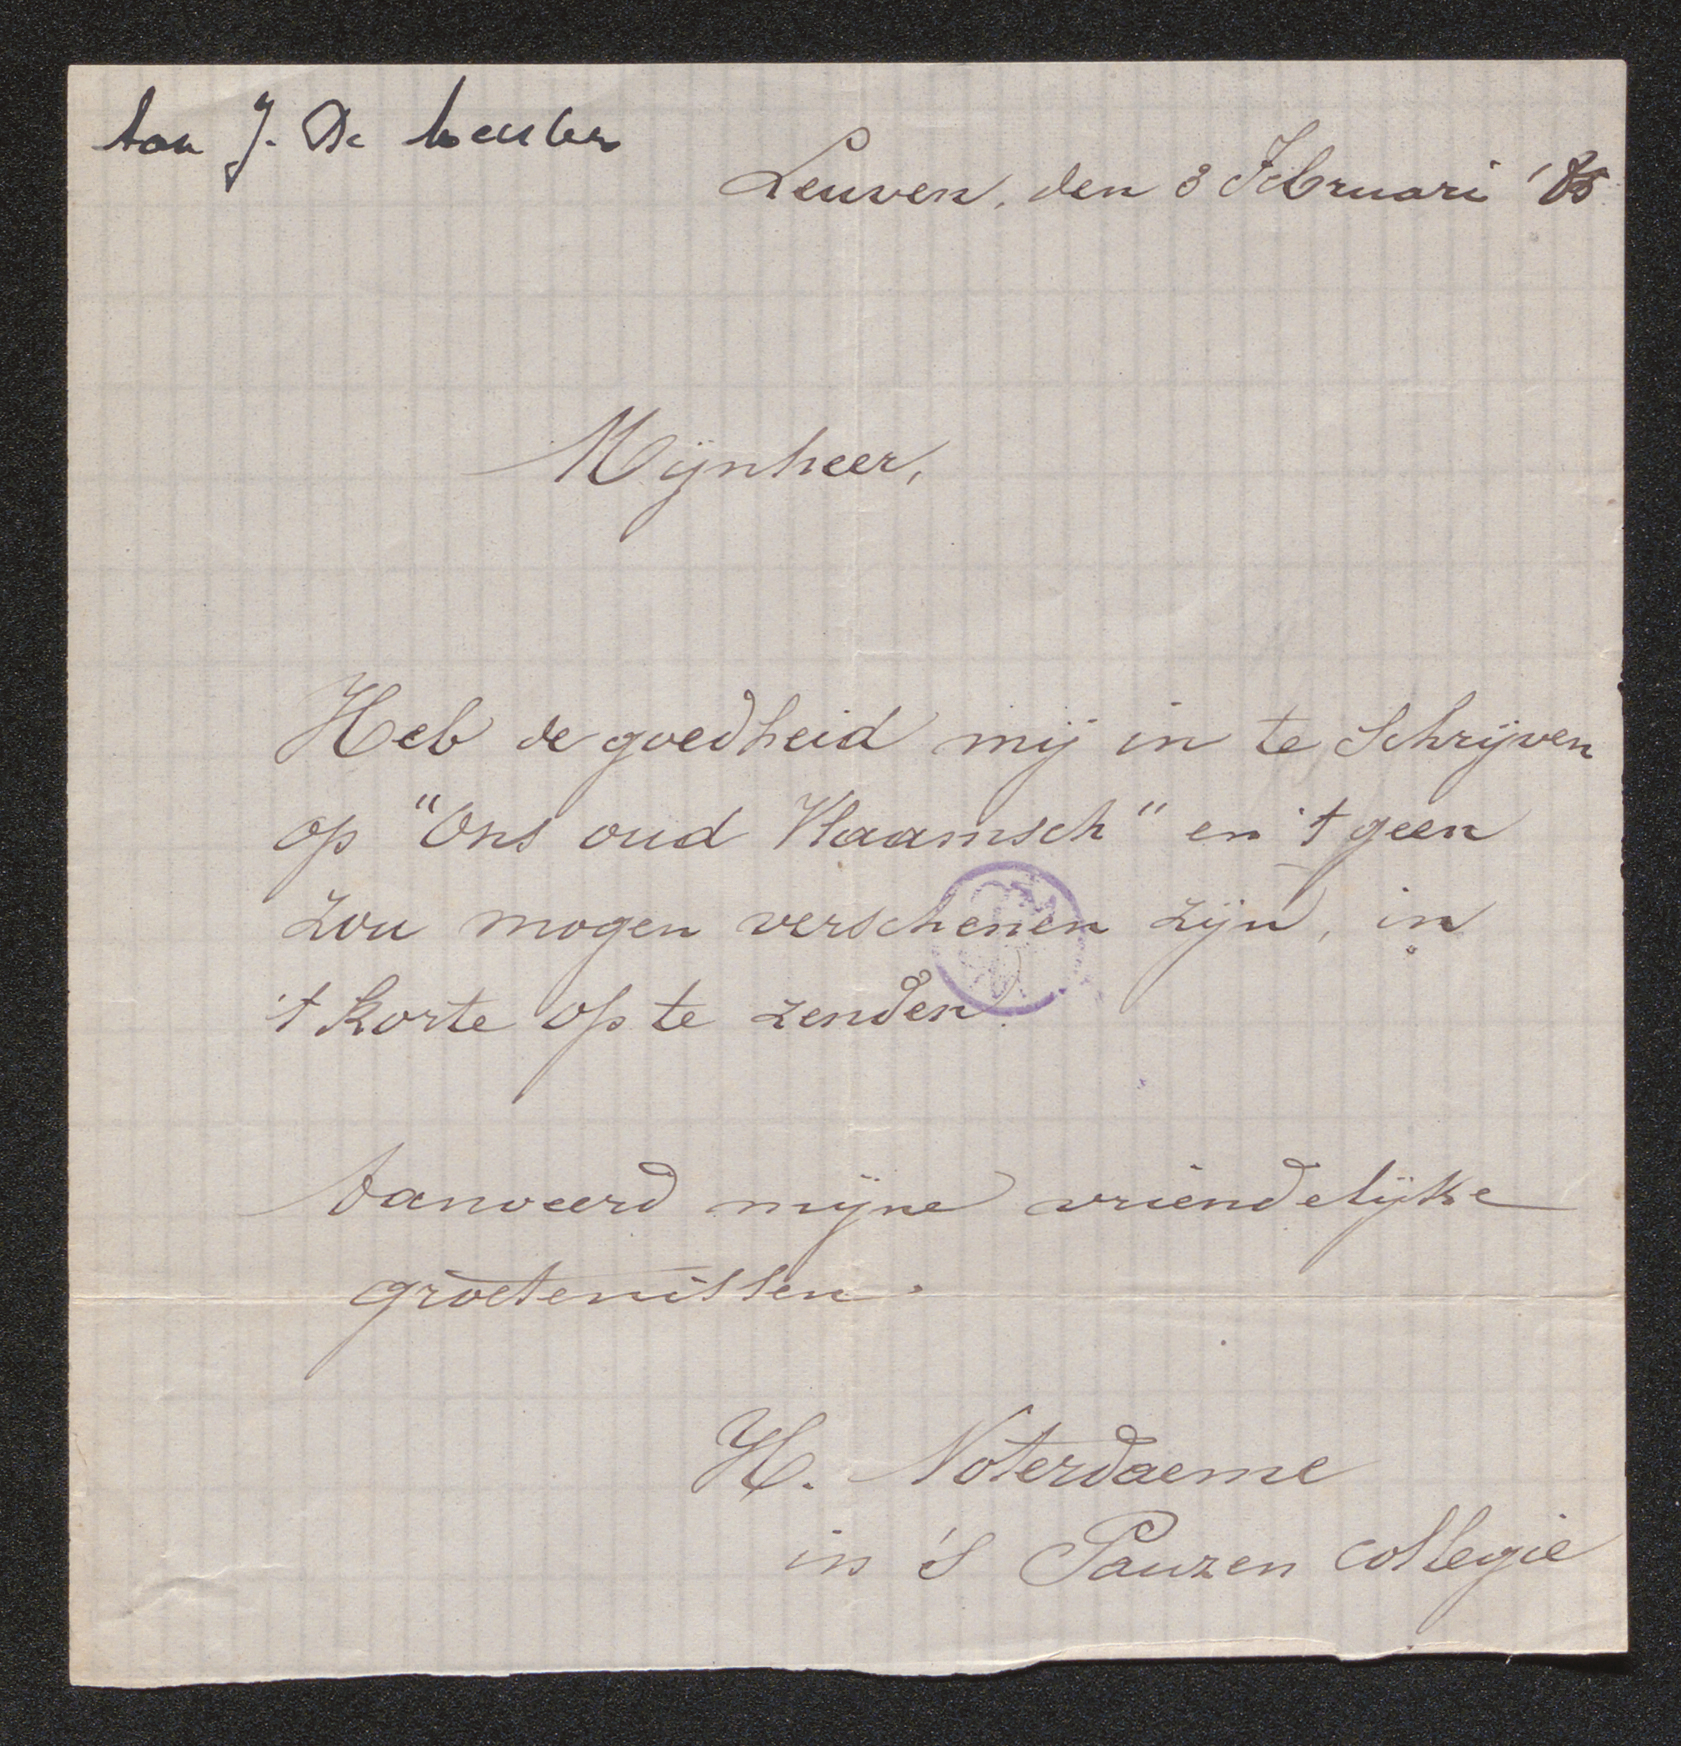 Aan J. De
Leuven, den 3 Februari '85
Mijnheer,
Heb de goedheid mij in te schrijven
op "Ons oud Vlaamsch" en 't geen
zou mogen verschenen zijn, in
't korte op te zenden.
Aanveerd mijne vriendelijke
groetenissen.
H. Noterdaeme
in 's Pauzen collegie